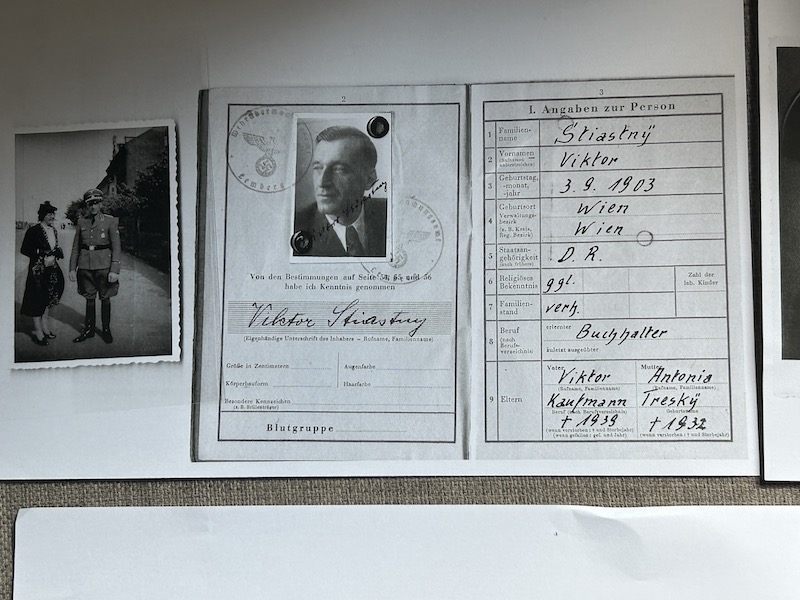 2
Wehrbezirkskommando
Lemberg
Viktor Stiastny
Von den Bestimmungen auf Seite 54, 55 und 56
habe ich Kenntnis genommen
Viktor Stiastny
(Eigenhändige Unterschrift des Inhabers – Rufname, Familienname)
Größe in Zentimetern
Augenfarbe
Körperbauform
Haarfarbe
Besondere Kennzeichen
(z. B. Brillenträger)
Blutgruppe
3
I. Angaben zur Person
1 Familien-
name
Stiastný
2 Vornamen
(Rufname
unterstreichen)
Viktor
3 Geburtstag,
-monat,
-jahr
3. 9. 1903
4 Geburtsort
Verwaltungs-
bezirk
(z. B. Kreis,
Reg. Bezirk)
Wien
Wien
5 Staatsan-
gehörigkeit
(auch frühere)
D. R.
6 Religiöses
Bekenntnis
ggl.
Zahl der
leb. Kinder
7 Familien-
stand
verh.
8 Beruf
(nach
Berufs-
verzeichnis)
erlernter
Buchhalter
zuletzt ausgeübter
9 Eltern
Vater
Viktor
(Rufname, Familienname)
Kaufmann
Beruf (nach Berufsverzeichnis)
† 1939
(wenn verstorben: † und Sterbejahr)
(wenn gefallen: gef. und Jahr)
Mutter
Antonia
(Rufname, Familienname)
Treský
Geburtsname
† 1932
(wenn verstorben: † und Sterbejahr)